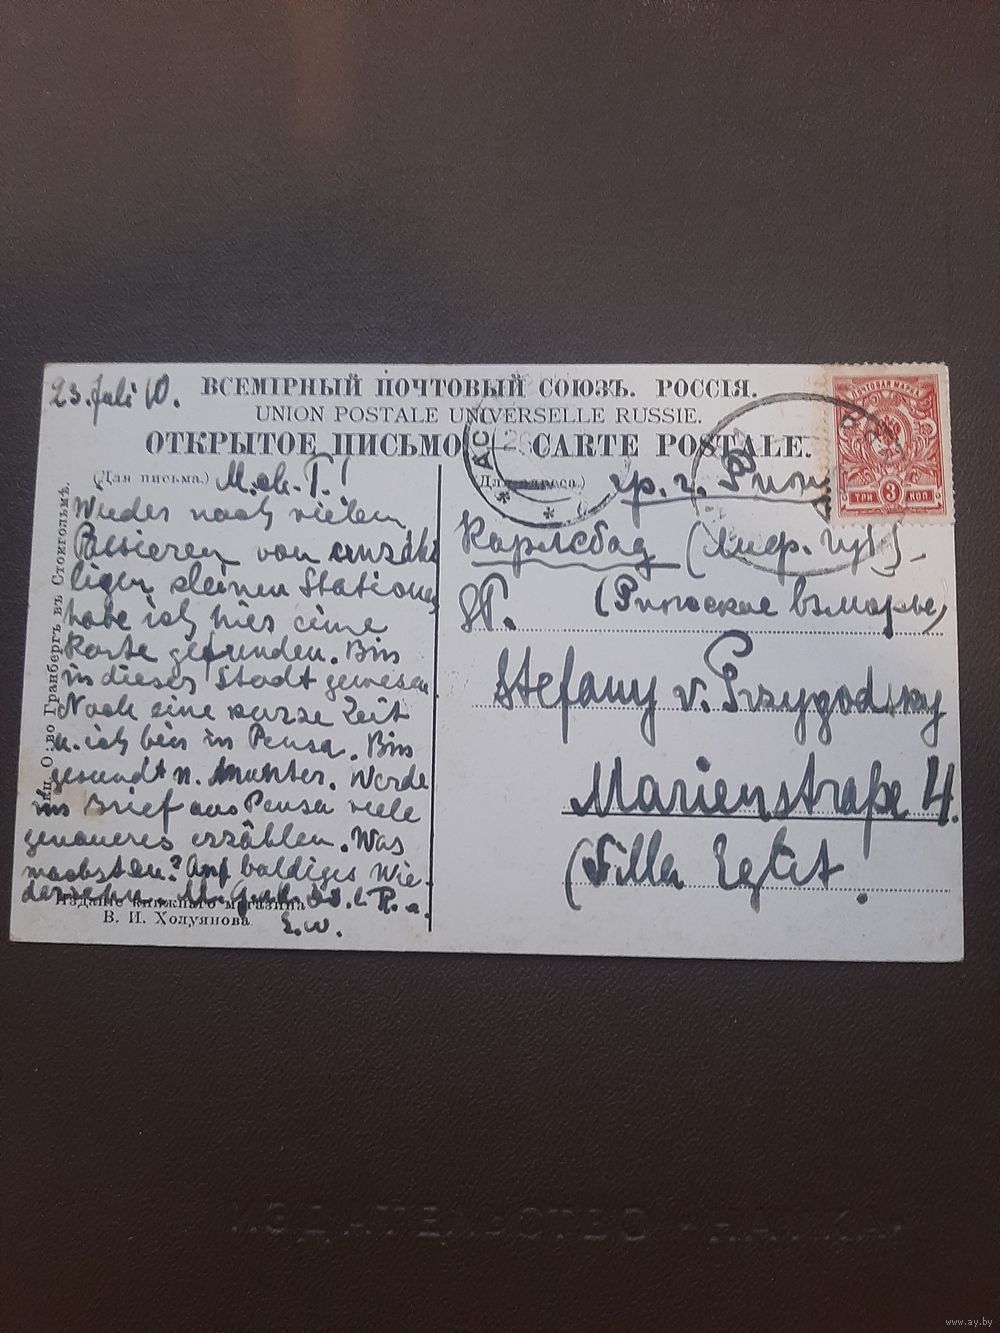 23. Juli 10.
ВСЕМІРНЫЙ ПОЧТОВЫЙ СОЮЗЪ. РОССІЯ.
UNION POSTALE UNIVERSELLE RUSSIE.
ОТКРЫТОЕ ПИСЬМО CARTE POSTALE.
(Для письма.)
Wieder nach vielem
Passieren von unzäh
ligen kleinen Stationen
habe ich hier eine
Karte gefunden. Bin
in dieser Stadt gewesen.
Noch eine kurze Zeit
u. ich bin in Pensa. Bin
gesund u. munter. Werde
im Brief aus Pensa viele
genaueres erzählen. Was
machsten? Auf baldiges Wie
dersehn
E.W.
Издание книжнаго магазина
В. И. Холуянова
О-во Гранбергъ въ Стокгольмѣ.
(Для адреса.)
ПОЧТОВАЯ МАРКА
ТРИ 3 КОП
гр. г.
Карлсбад
(Рижское взморье)
Stefany v. Przygodsky
Marienstraße 4.
(Villa Eglit.
ИЗДАТЕЛЬСТВО «НАУКА»
www.ay.by